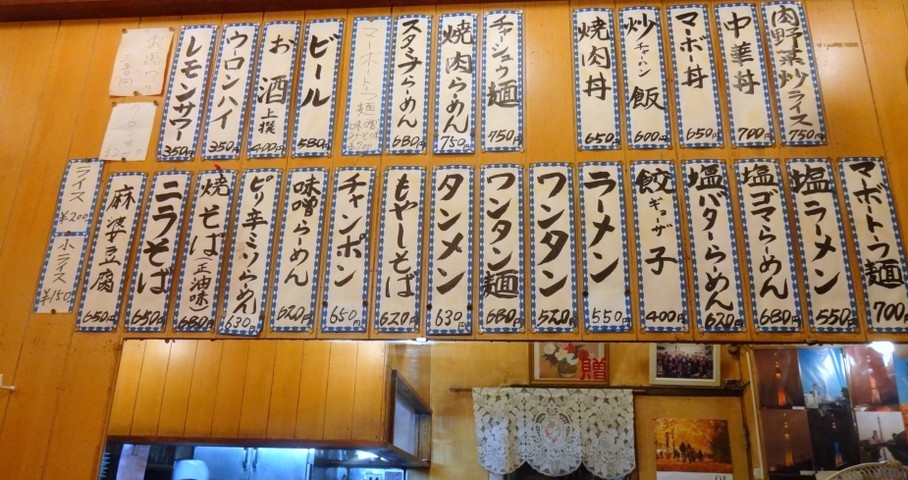 肉野菜炒ライス 750円
中華丼 700円
マーボー丼 650円
炒飯 チャーハン 600円
焼肉丼 650円
チャシュウ麺 750円
焼肉らーめん 750円
スタミナらーめん 680円
ビール 580円
お酒 上撰 400円
ウーロンハイ 350円
レモンサワー 350円
マボトーフ麺 700円
塩ラーメン 550円
塩ゴマらーめん 680円
塩バターらーめん 620円
餃子 ギョーザ 400円
ラーメン 550円
ワンタン 520円
ワンタン麺 680円
タンメン 630円
もやしそば 620円
チャンポン 650円
味噌らーめん 620円
ピリ辛ミソらーめん 630円
焼そば(正油味) 680円
ニラそば 650円
麻婆豆腐 650円
ライス ¥200
小ライス ¥150
贈